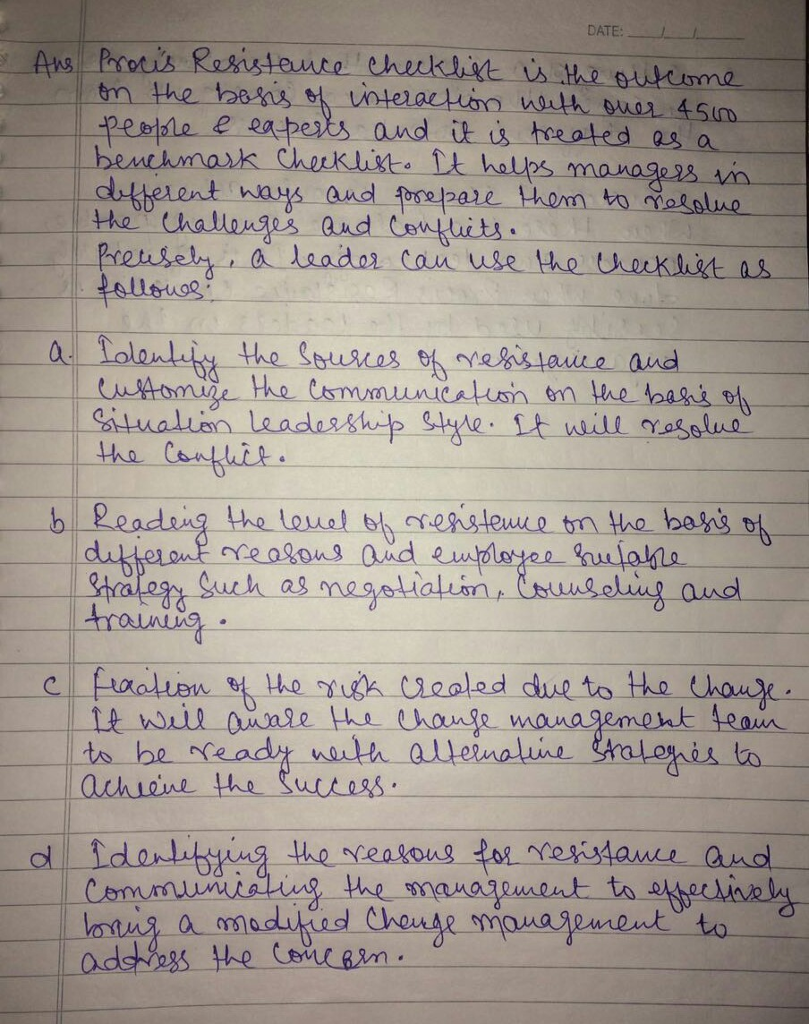 DATE: __/__/__
Ans Procis Resistance checklist is the outcome
on the basis of interaction with over 4500
people & experts and it is treated as a
benchmark Checklist. It helps managers in
different ways and prepare them to resolve
the challenges and Conflicts.
Precisely, a leader can use the checklist as
follows:
a. Identify the Sources of resistance and
Customize the Communication on the basis of
Situation leadership style. It will resolve
the Conflict.
b Reading the level of resistence on the basis of
different reasons and employee suitable
Strategy Such as negotiation, Counseling and
training.
c fixation of the risk Created due to the Change.
It will aware the change management team
to be ready with alternative Strategies to
achieve the Success.
d Identifying the reasons for resistance and
Communicating the management to effectively
bring a modified Change management to
address the Concern.